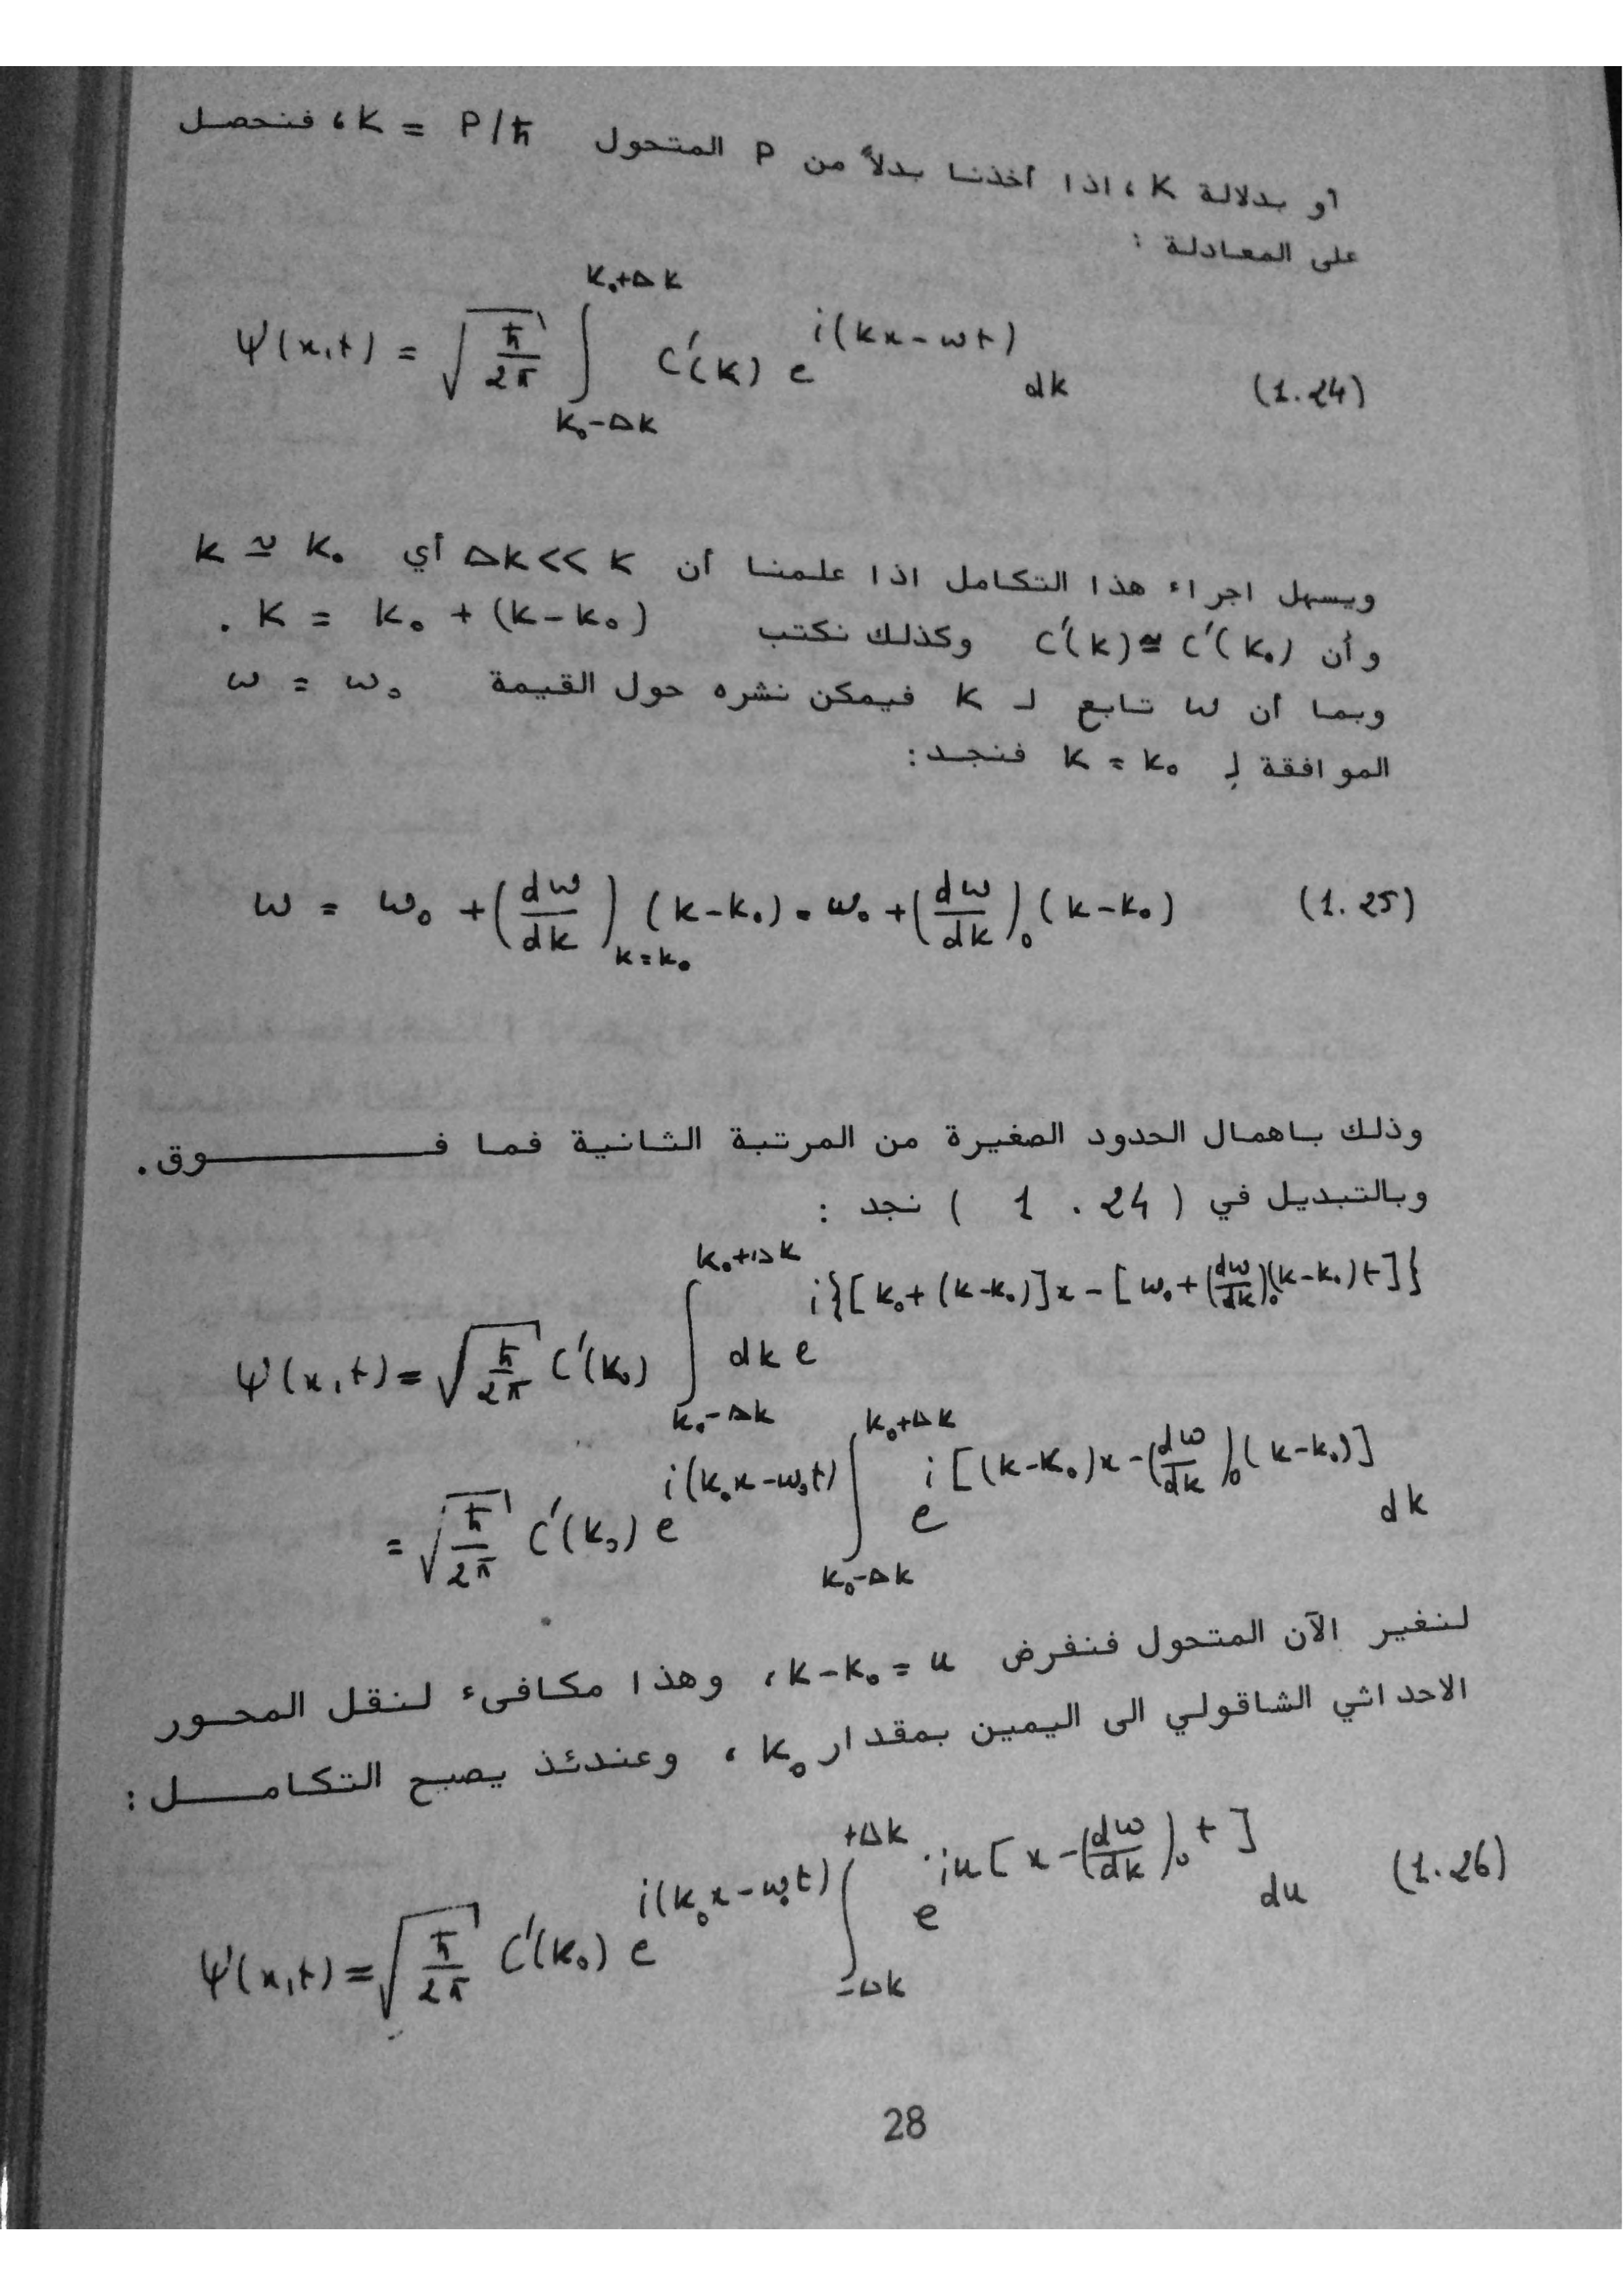 أو بدلالة K ، اذا أخذنا بدلاً من P المتحول K = P/ħ ، فنحصل
على المعادلة :
ψ(x,t) = √(ħ/2π) ∫_{k₀-Δk}^{k₀+Δk} C'(k) e^{i(kx-ωt)} dk (1.24)
ويسهل اجراء هذا التكامل اذا علمنا أن Δk << k أي k ≃ k₀
وأن C'(k) ≅ C'(k₀) وكذلك نكتب k = k₀ + (k-k₀) .
وبما أن ω تابع لـ k فيمكن نشره حول القيمة ω = ω₀
الموافقة لـِ k = k₀ فنجد :
ω = ω₀ + (dω/dk)_{k=k₀} (k-k₀) = ω₀ + (dω/dk)₀ (k-k₀) (1.25)
وذلك باهمال الحدود الصغيرة من المرتبة الثانية فما فـــــــوق .
وبالتبديل في ( 1 . 24 ) نجد :
ψ(x,t) = √(ħ/2π) C'(k₀) ∫_{k₀-Δk}^{k₀+Δk} dk e^{i{[k₀+(k-k₀)]x-[ω₀+(dω/dk)₀(k-k₀)t]}}
= √(ħ/2π) C'(k₀) e^{i(k₀x-ω₀t)} ∫_{k₀-Δk}^{k₀+Δk} e^{i[(k-k₀)x-(dω/dk)₀(k-k₀)]} dk
لنغير الآن المتحول فنفرض k-k₀ = u ، وهذا مكافىء لنقل المحـور
الاحداثي الشاقولي الى اليمين بمقدار k₀ ، وعندئذ يصبح التكامـــل :
ψ(x,t) = √(ħ/2π) C'(k₀) e^{i(k₀x-ω₀t)} ∫_{-Δk}^{+Δk} e^{iu[x-(dω/dk)₀t]} du (1.26)
28